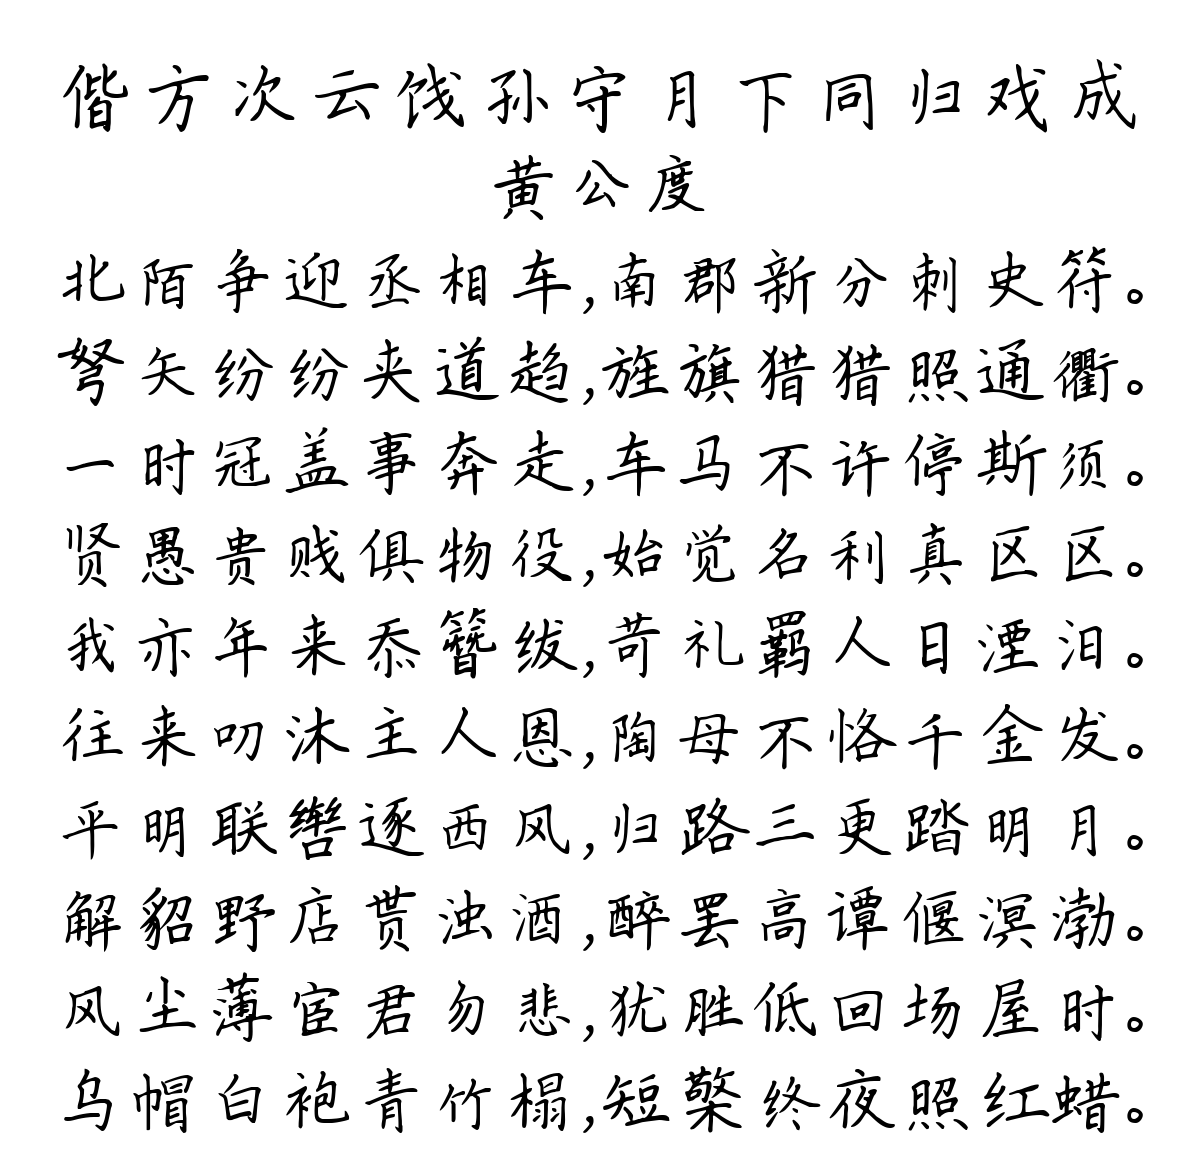 偕方次云饯孙守月下同归戏成
黄公度
北陌争迎丞相车,南郡新分刺史符。
弩矢纷纷夹道趋,旌旗猎猎照通衢。
一时冠盖事奔走,车马不许停斯须。
贤愚贵贱俱物役,始觉名利真区区。
我亦年来忝簪绂,苛礼羁人日湮汩。
往来叨沐主人恩,陶母不恪千金发。
平明联辔逐西风,归路三更踏明月。
解貂野店贳浊酒,醉罢高谭偃溟渤。
风尘薄宦君勿悲,犹胜低回场屋时。
乌帽白袍青竹榻,短檠终夜照红蜡。